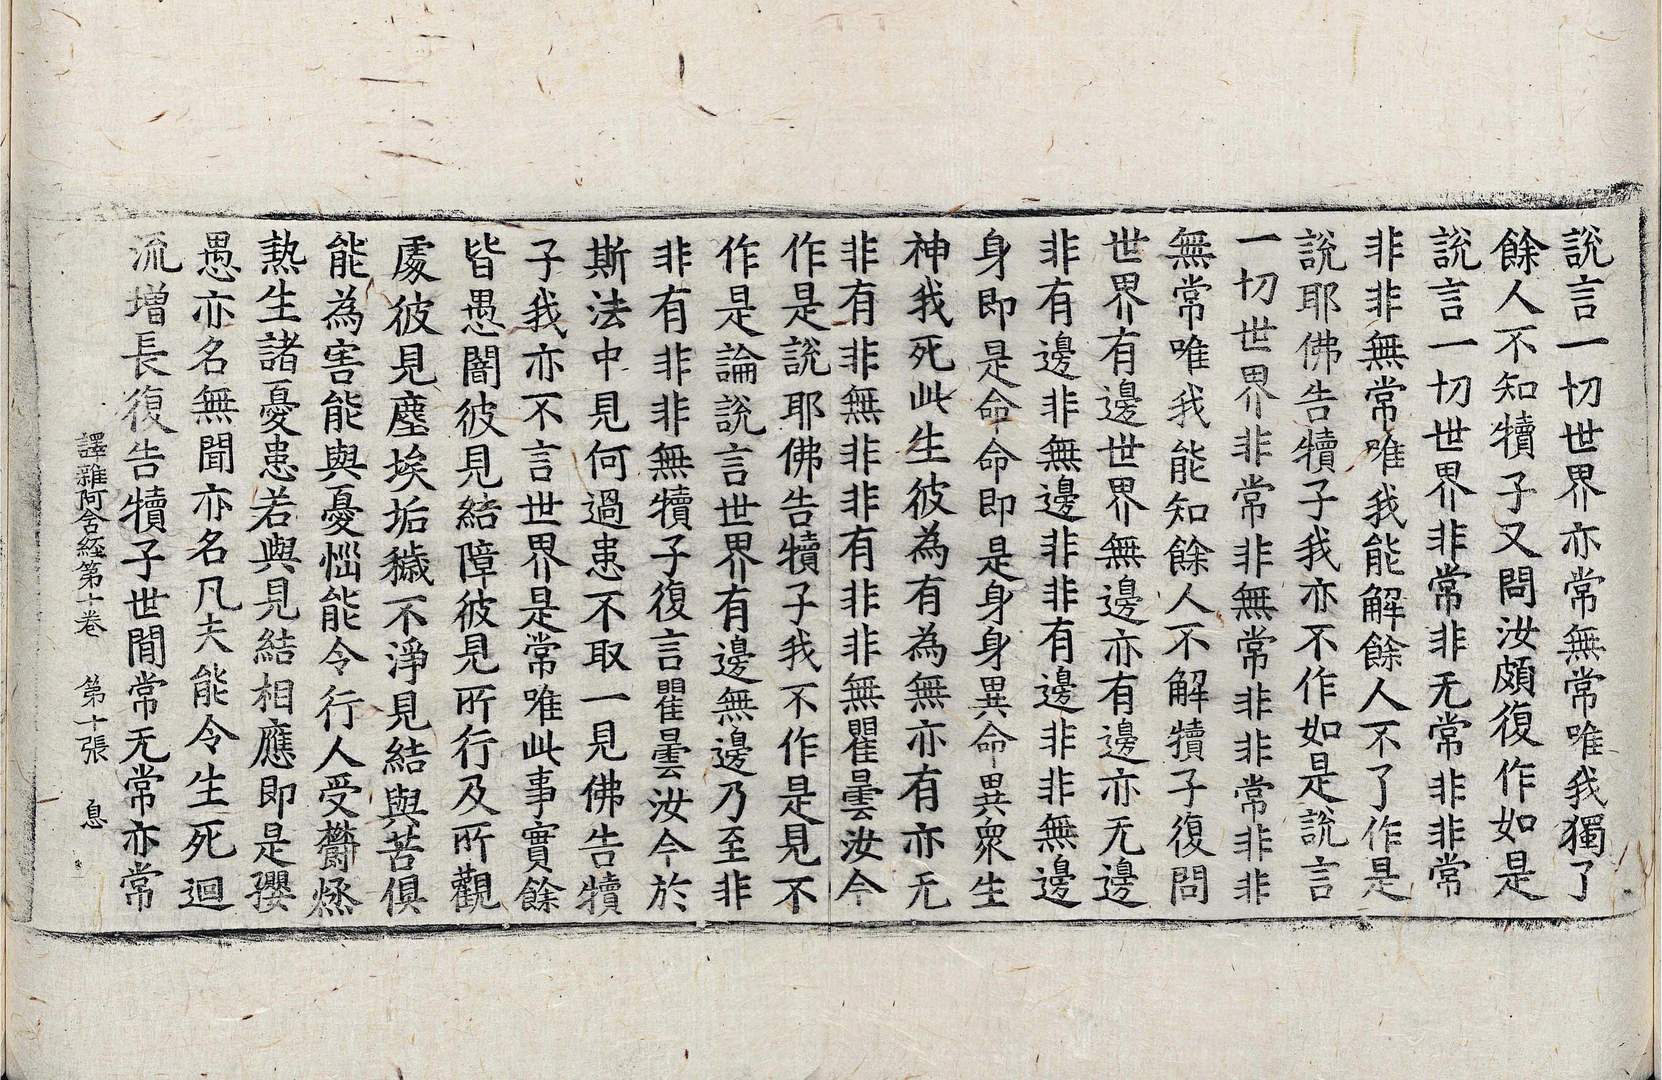 說言一切世界亦常無常唯我獨了
餘人不知犢子又問汝頗復作如是
說言一切世界非常非无常非非常
非非無常唯我能解餘人不了作是
說耶佛告犢子我亦不作如是說言
一切世界非常非無常非非常非非
無常唯我能知餘人不解犢子復問
世界有邊世界無邊亦有邊亦无邊
非有邊非無邊非非有邊非非無邊
身即是命命即是身身異命異眾生
神我死此生彼為有為無亦有亦无
非有非無非非有非非無瞿曇汝今
作是說耶佛告犢子我不作是見不
作是論說言世界有邊無邊乃至非
非有非非無犢子復言瞿曇汝今於
斯法中見何過患不取一見佛告犢
子我亦不言世界是常唯此事實餘
皆愚闇彼見結障彼見所行及所觀
處彼見塵埃垢穢不淨見結與苦俱
能為害能與憂惱能令行人受欝烝
熱生諸憂患若與見結相應即是孾
愚亦名無聞亦名凡夫能令生死迴
流增長復告犢子世間常无常亦常
譯雜阿含經第十卷　第十張　息